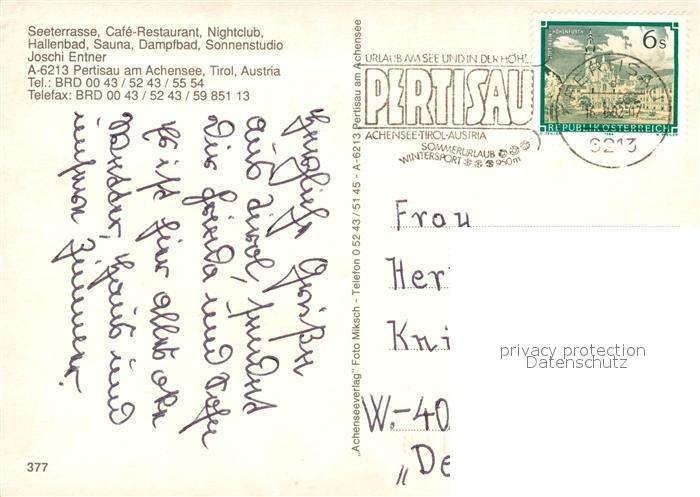 Seeterrasse, Café-Restaurant, Nightclub,
Hallenbad, Sauna, Dampfbad, Sonnenstudio
Joschi Entner
A-6213 Pertisau am Achensee, Tirol, Austria
Tel.: BRD 00 43 / 52 43 / 55 54
Telefax: BRD 00 43 / 52 43 / 59 851 13
Herzliche Grüße
aus Tirol, sendet
Die Gerda und
Es ist hier alles okn
Wetter, Haus und
unser Zimmer.
377
„Achenseeverlag" Foto Miksch - Telefon 0 52 43 / 51 45 - A-6213 Pertisau am Achensee
URLAUB AM SEE UND IN DER HÖH'...
PERTISAU
ACHENSEE-TIROL-AUSTRIA
SOMMERURLAUB
WINTERSPORT 950m
6s
REPUBLIK ÖSTERREICH
PERTISAU
6213
Frau
Her
Kni
W.-40
„De
privacy protection
Datenschutz